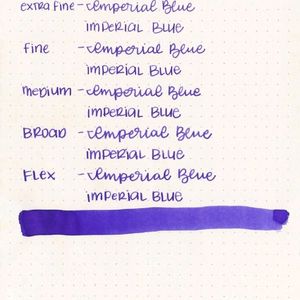 extra fine - Imperial Blue
imperial blue
fine - Imperial Blue
imperial blue
medium - Imperial Blue
imperial blue
BROAD - Imperial Blue
imperial blue
FLEX - Imperial Blue
imperial blue